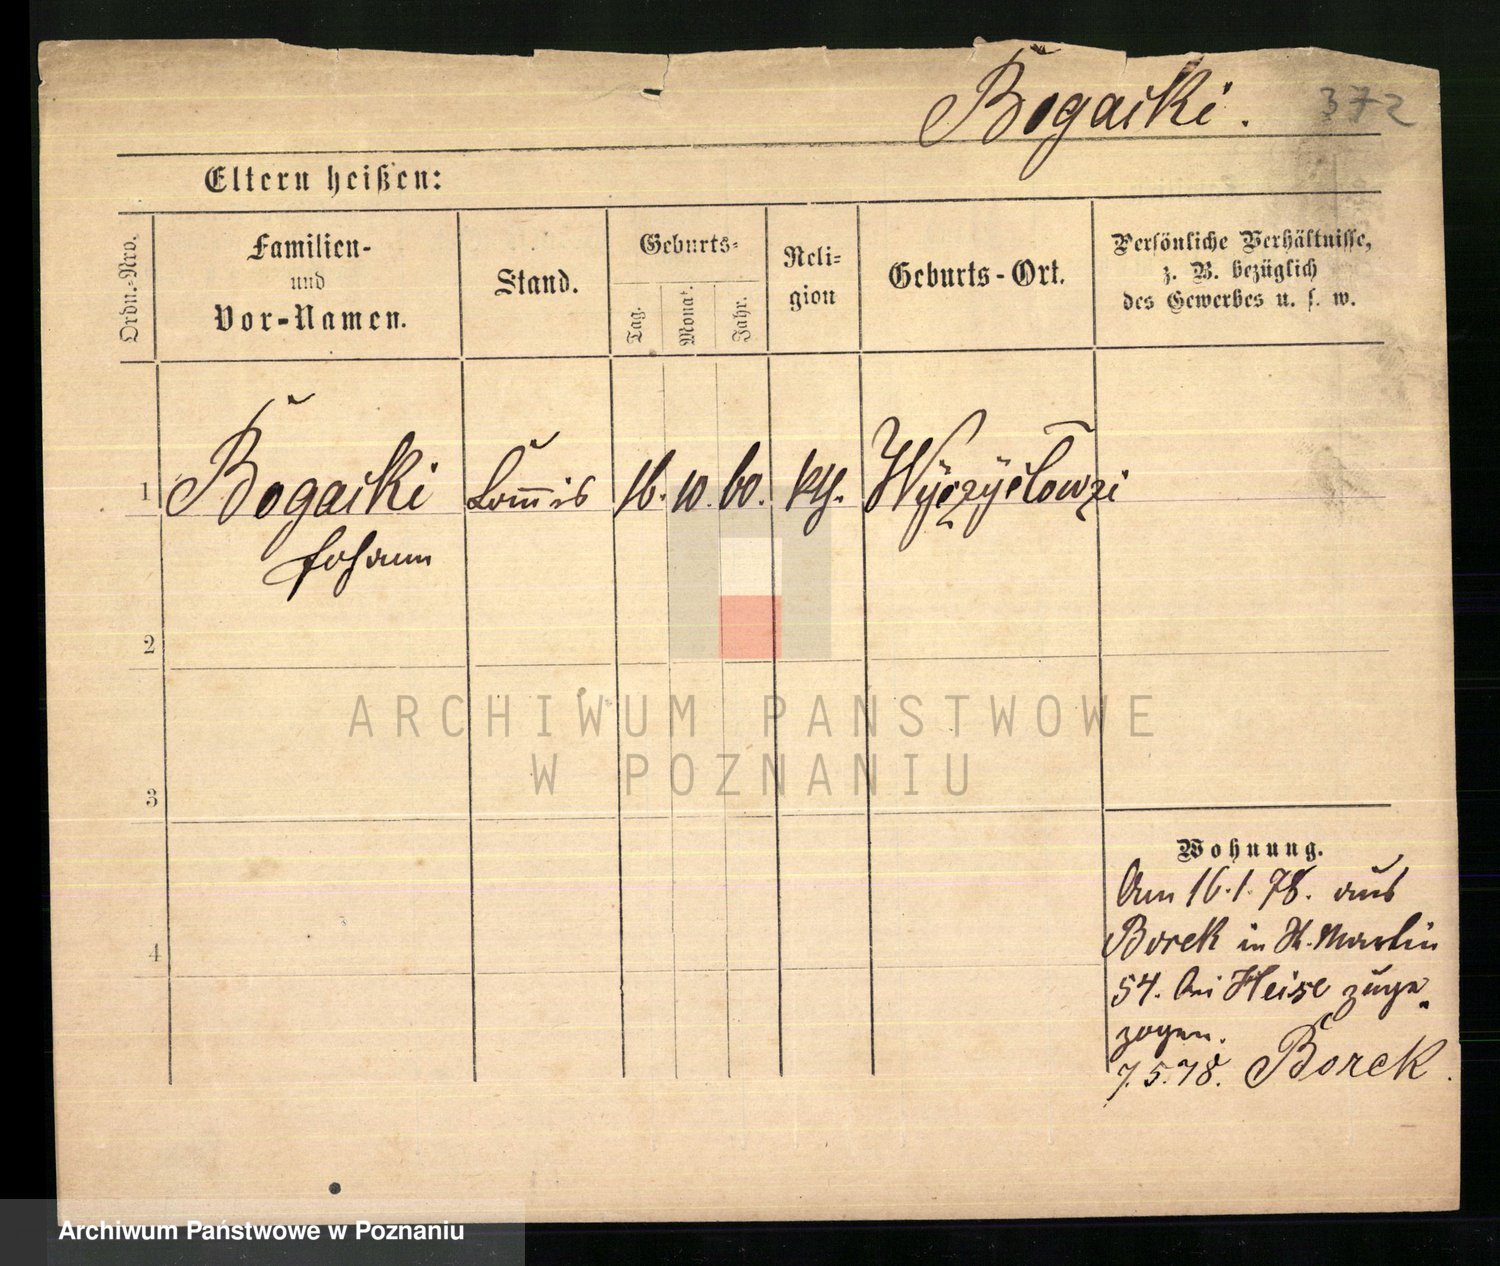 Bogacki.
372
Eltern heißen:
Ordn.-Nro.
Familien-
und
Vor-Namen.
Stand.
Geburts-
Tag.
Monat.
Jahr.
Reli-
gion
Geburts-Ort.
Persönliche Verhältnisse,
z. B. bezüglich
des Gewerbes u. s. w.
1
Bogacki
Johann
Com̅is
16.
10.
60.
kth.
2
3
4
ARCHIWUM PAŃSTWOWE
W POZNANIU
Wohnung.
Am 16.1.78. aus
Borek in St. Martin
54. bei Heise zuge-
zogen.
7.5.78. Borek.
Archiwum Państwowe w Poznaniu